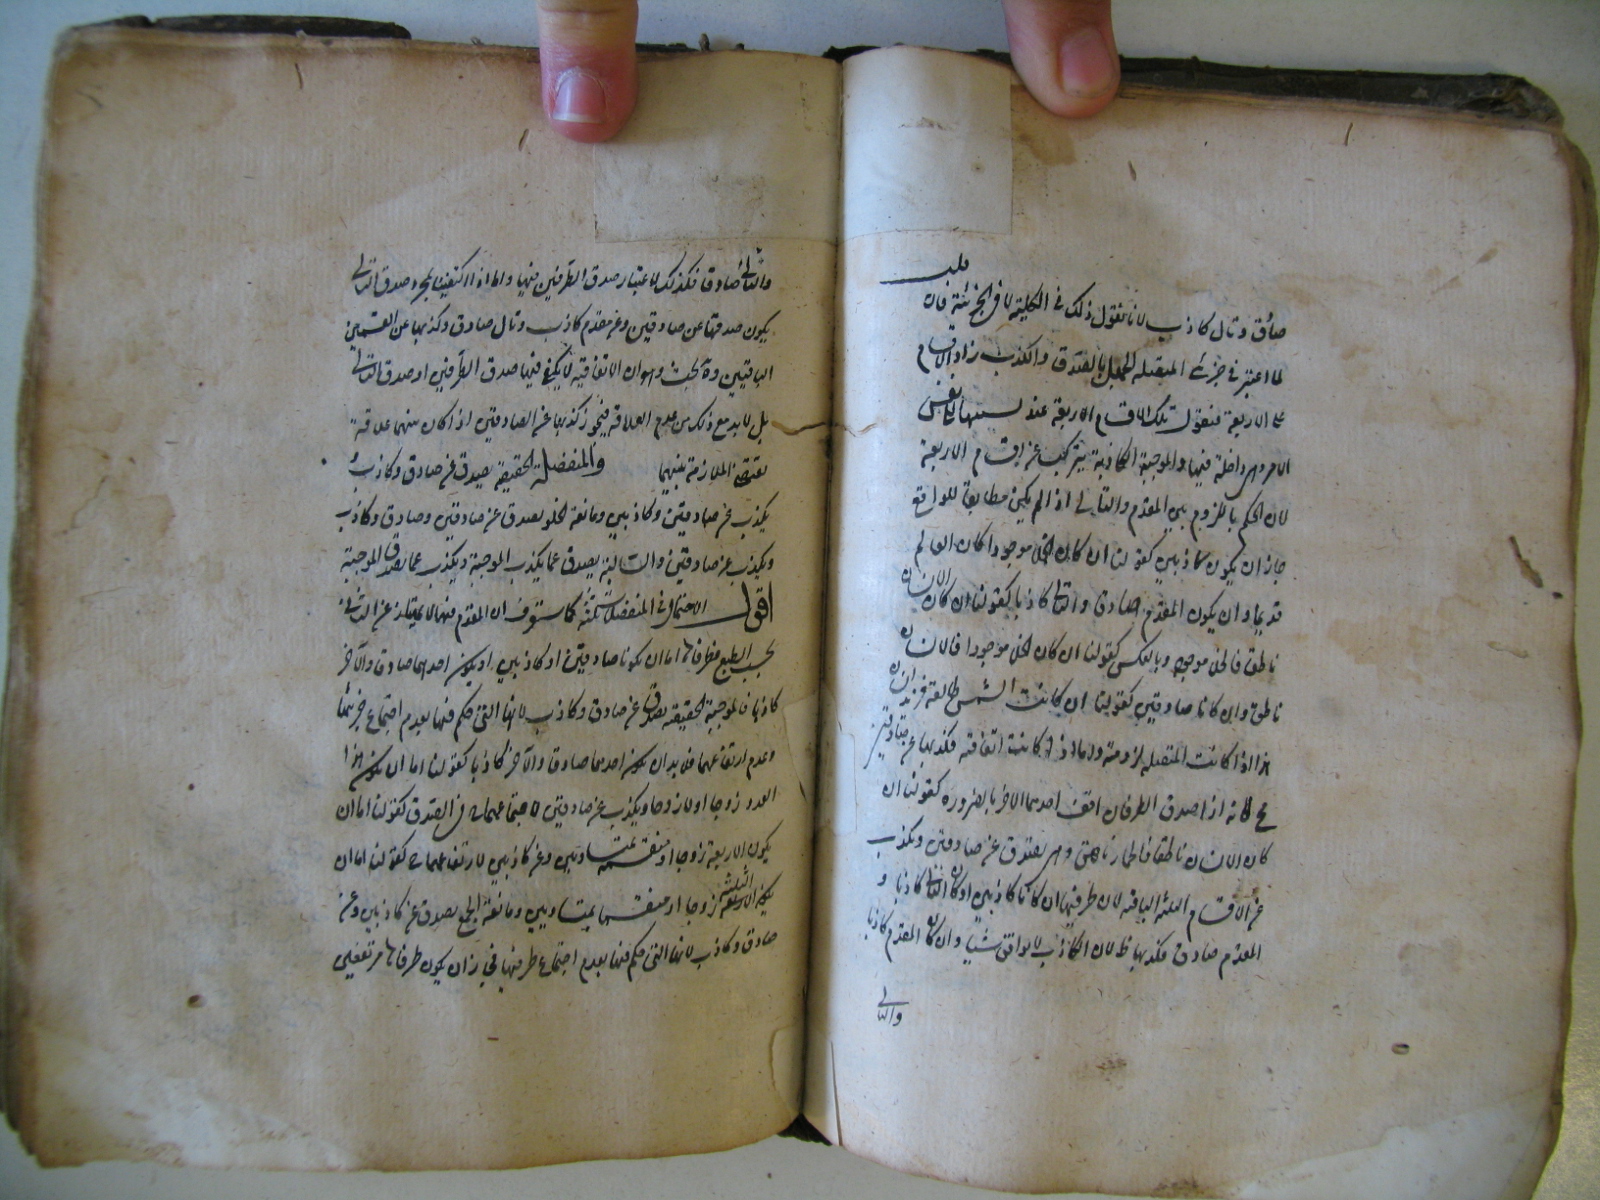 صادق وتال كاذب لانا نقول ذلك في الكلية لا في الجزئية فان
لما اعتبر في جزئي المتصلة الحمل بالصدق والكذب زاد الاقسام
على الاربعة فنقول تلك الاقسام الاربعة عند نسبتها الى نفس
الامر وهي داخلة فيها والموجبة الكاذبة يتركب عن اقسام الاربعة
لان الحكم باللزوم بين المقدم والتالي اذا لم يكن مطابقا للواقع
جاز ان يكون كاذبين كقولنا ان كان الخلا موجودا كان العالم
قديما وان يكون المقدم صادقا والتالي كاذبا كقولنا ان كان الانسان
ناطقا فالخلا موجود وبالعكس كقولنا ان كان الخلا موجودا فالانسان
ناطق وان كانا صادقين كقولنا ان كانت الشمس طالعة فزيد انسان
هذا اذا كانت المتصلة لزومية واما اذا كانت اتفاقية فكذبها عن صادقين
مح لانه اذا صدق الطرفان وافق احدهما الاخر بالضرورة كقولنا ان
كان الانسان ناطقا فالحمار ناهق وهي تصدق عن صادقين وتكذب
عن الاقسام الثلثة الباقية لان طرفيها ان كانا كاذبين او كان التالي كاذبا و
المقدم صادقا فكذبها ظ لان الكاذب لا يوافق شيئا وان كان المقدم كاذبا
والتالي
والتالي صادقا فكذلك لاعتبار صدق الطرفين فيها واما اذا اكتفينا بمجرد صدق التالي
يكون صدقها عن صادقين وعن مقدم كاذب وتال صادق وكذبها عن القسمين
الباقيين وههنا بحث وهو ان الاتفاقية لا يكفي فيها صدق الطرفين او صدق التالي
بل لا بد مع ذلك من عدم العلاقة فيجوز كذبها عن الصادقين اذا كان بينهما علاقة
تقتضي الملازمة بينهما والمنفصلة الحقيقية يصدق عن صادق وكاذب و
يكذب عن صادقين وكاذبين ومانعة الخلو تصدق عن صادقين وصادق وكاذب
ويكذب عن صادقين والسالبة يصدق عما يكذب الموجبة ويكذب عما يصدق الموجبة
اقول الاحتمال في المنفصلات ثلثة كما ستعرف ان المقدم فيها لا يمتاز عن التالي
بحسب الطبع فطرفاها اما ان يكونا صادقين او كاذبين او يكون احدهما صادقا والاخر
كاذبا فالموجبة الحقيقية تصدق عن صادق وكاذب لانها التي حكم فيها بعدم اجتماع جزئيها
وعدم ارتفاعهما فلا بد ان يكون احدهما صادقا والاخر كاذبا كقولنا اما ان يكون هذا
العدد زوجا او لا زوجا ويكذب عن صادقين لاجتماعهما ح في الصدق كقولنا اما ان
يكون الاربعة زوجا او منقسمة بمتساويين وعن كاذبين لارتفاعهما ح كقولنا اما ان
يكون الثلثة زوجا او منقسما بمتساويين ومانعة الجمع يصدق عن كاذبين وعن
صادق وكاذب لانها التي حكم فيها بعدم اجتماع طرفيها فجاز ان يكون طرفاها مرتفعين